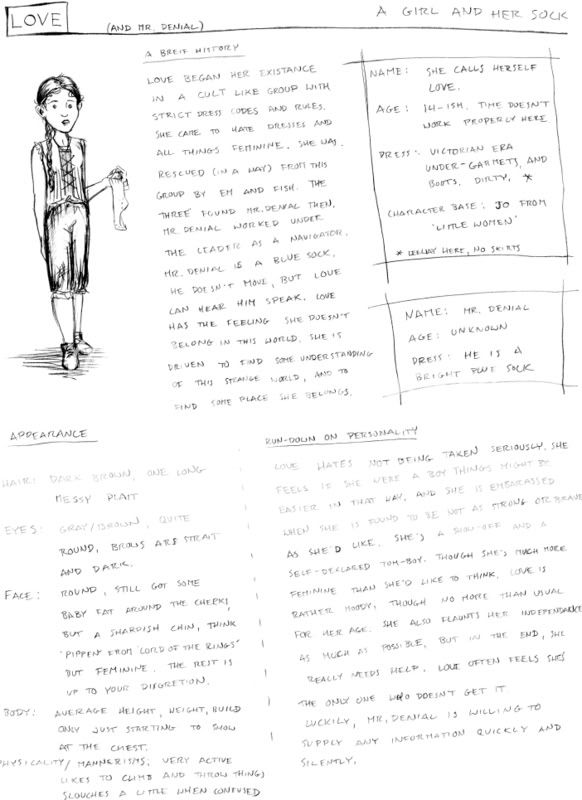 LOVE
(AND MR. DENIAL)
A GIRL AND HER SOCK
A BREIF HISTORY
LOVE BEGAN HER EXISTANCE
IN A CULT LIKE GROUP WITH
STRICT DRESS CODES AND RULES.
SHE CAME TO HATE DRESSES AND
ALL THINGS FEMININE. SHE WAS
RESCUED (IN A WAY) FROM THIS
GROUP BY EM AND FISH. THE
THREE FOUND MR. DENIAL THEN.
MR. DENIAL WORKED UNDER
THE LEADER AS A NAVIGATOR.
MR. DENIAL IS A BLUE SOCK.
HE DOESN'T MOVE, BUT LOVE
CAN HEAR HIM SPEAK. LOVE
HAS THE FEELING SHE DOESN'T
BELONG IN THIS WORLD. SHE IS
DRIVEN TO FIND SOME UNDERSTANDING
OF THIS STRANGE WORLD, AND TO
FIND SOME PLACE SHE BELONGS.
NAME: SHE CALLS HERSELF
LOVE.
AGE: 14-ISH. TIME DOESN'T
WORK PROPERLY HERE
DRESS: VICTORIAN ERA
UNDER-GARMETS, AND
BOOTS, DIRTY. *
CHARACTER BASE: JO FROM
'LITTLE WOMEN'
* LEEWAY HERE, NO SKIRTS
NAME: MR. DENIAL
AGE: UNKNOWN
DRESS: HE IS A
BRIGHT BLUE SOCK
APPEARANCE
HAIR: DARK BROWN, ONE LONG
MESSY PLAIT
EYES: GRAY/BROWN, QUITE
ROUND, BROWS ARE STRAIT
AND DARK.
FACE: ROUND, STILL GOT SOME
BABY FAT AROUND THE CHEEKS,
BUT A SHARPISH CHIN, THINK
'PIPPEN FROM 'LORD OF THE RINGS'
BUT FEMININE. THE REST IS
UP TO YOUR DISCRETION.
BODY: AVERAGE HEIGHT, HEIGHT, BUILD
ONLY JUST STARTING TO SHOW
AT THE CHEST.
PHYSICALITY/MANNERISMS: VERY ACTIVE
LIKES TO CLIMB AND THROW THINGS
SLOUCHES A LITTLE WHEN CONFUSED
RUN-DOWN ON PERSONALITY
LOVE HATES NOT BEING TAKEN SERIOUSLY. SHE
FEELS IF SHE WERE A BOY THINGS MIGHT BE
EASIER IN THAT WAY, AND SHE IS EMBARASSED
WHEN SHE IS FOUND TO BE NOT AS STRONG OR BRAVE
AS SHE'D LIKE. SHE'S A SHOW-OFF AND A
SELF-DECLARED TOM-BOY. THOUGH SHE'S MUCH MORE
FEMININE THAN SHE'D LIKE TO THINK. LOVE IS
RATHER MOODY, THOUGH NO MORE THAN USUAL
FOR HER AGE. SHE ALSO FLAUNTS HER INDEPENDANCE
AS MUCH AS POSSIBLE, BUT IN THE END, SHE
REALLY NEEDS HELP. LOVE OFTEN FEELS SHE'S
THE ONLY ONE WHO DOESN'T GET IT.
LUCKILY, MR. DENIAL IS WILLING TO
SUPPLY ANY INFORMATION QUICKLY AND
SILENTLY.